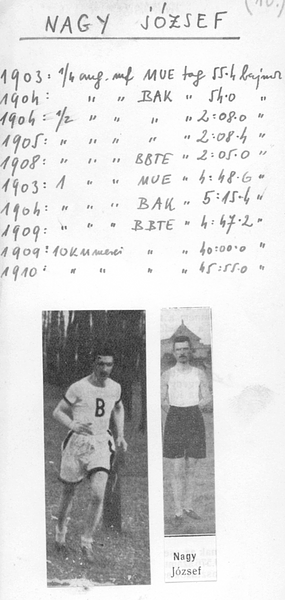 (10.)
NAGY JÓZSEF
1903: 1/4 ang. mf MUE tag 55.4 bajnok
1904: " " BAK " 54.0 "
1904: 1/2 " " " " 2:08.0 "
1905: " " " " " 2:08.4 "
1908: " " " BBTE " 2:05.0 "
1903: 1 " " MUE " 4:48.6 "
1904: " " " BAK " 5:15.4 "
1909: " " " BBTE " 4:47.2 "
1909: 10 KM " " 40:00.0 "
1910: " " " " 45:55.0 "
B
Nagy
József